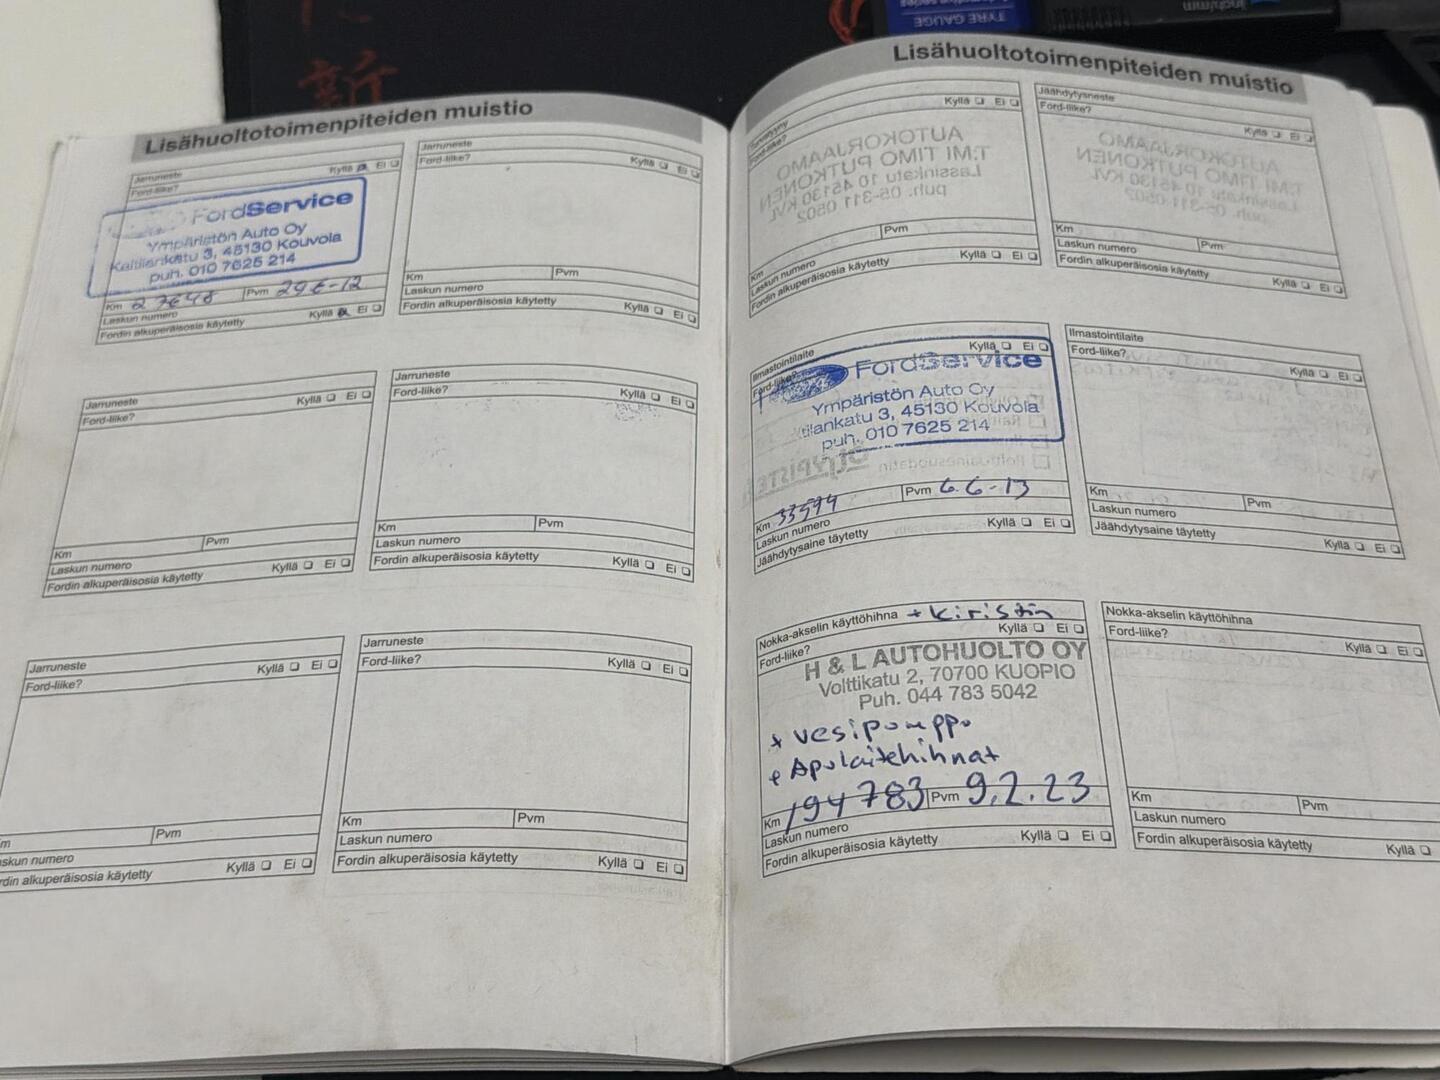 新
TYRE GAUGE
inch/mm
Lisähuoltotoimenpiteiden muistio
Jarruneste
Ford-liike? Kyllä Ei
FordService
Ympäristön Auto Oy
Kaitilankatu 3, 45130 Kouvola
puh. 010 7625 214
Km 27648 Pvm 29.6-12
Laskun numero
Fordin alkuperäisosia käytetty Kyllä Ei
Jarruneste
Ford-liike? Kyllä Ei
Km Pvm
Laskun numero
Fordin alkuperäisosia käytetty Kyllä Ei
Jarruneste
Ford-liike? Kyllä Ei
Km Pvm
Laskun numero
Fordin alkuperäisosia käytetty Kyllä Ei
Jarruneste
Ford-liike? Kyllä Ei
Km Pvm
Laskun numero
Fordin alkuperäisosia käytetty Kyllä Ei
Jarruneste
Ford-liike? Kyllä Ei
Km Pvm
Laskun numero
Fordin alkuperäisosia käytetty Kyllä Ei
Jarruneste
Ford-liike? Kyllä Ei
Km Pvm
Laskun numero
Fordin alkuperäisosia käytetty Kyllä Ei
Lisähuoltotoimenpiteiden muistio
Ford-liike? Kyllä Ei
AUTOKORJAAMO
T:MI TIMO PUTKONEN
Lassinkatu 10 45130 KVL
puh. 05-311 0502
Km Pvm
Laskun numero
Fordin alkuperäisosia käytetty Kyllä Ei
Jäähdytysneste
Ford-liike? Kyllä Ei
AUTOKORJAAMO
T:MI TIMO PUTKONEN
Lassinkatu 10 45130 KVL
puh. 05-311 0502
Km Pvm
Laskun numero
Fordin alkuperäisosia käytetty Kyllä Ei
Ilmastointilaite
Ford-liike? Kyllä Ei
FordService
Ympäristön Auto Oy
tilankatu 3, 45130 Kouvola
puh. 010 7625 214
Km 33594 Pvm 6.6-13
Laskun numero
Jäähdytysaine täytetty Kyllä Ei
Ilmastointilaite
Ford-liike? Kyllä Ei
Km Pvm
Laskun numero
Jäähdytysaine täytetty Kyllä Ei
Nokka-akselin käyttöhihna + kiristin
Ford-liike? Kyllä Ei
H & L AUTOHUOLTO OY
Volttikatu 2, 70700 KUOPIO
Puh. 044 783 5042
+ vesipumppu
+ Apulaitehihnat
Km 194783 Pvm 9.2.23
Laskun numero
Fordin alkuperäisosia käytetty Kyllä Ei
Nokka-akselin käyttöhihna
Ford-liike? Kyllä Ei
Km Pvm
Laskun numero
Fordin alkuperäisosia käytetty Kyllä